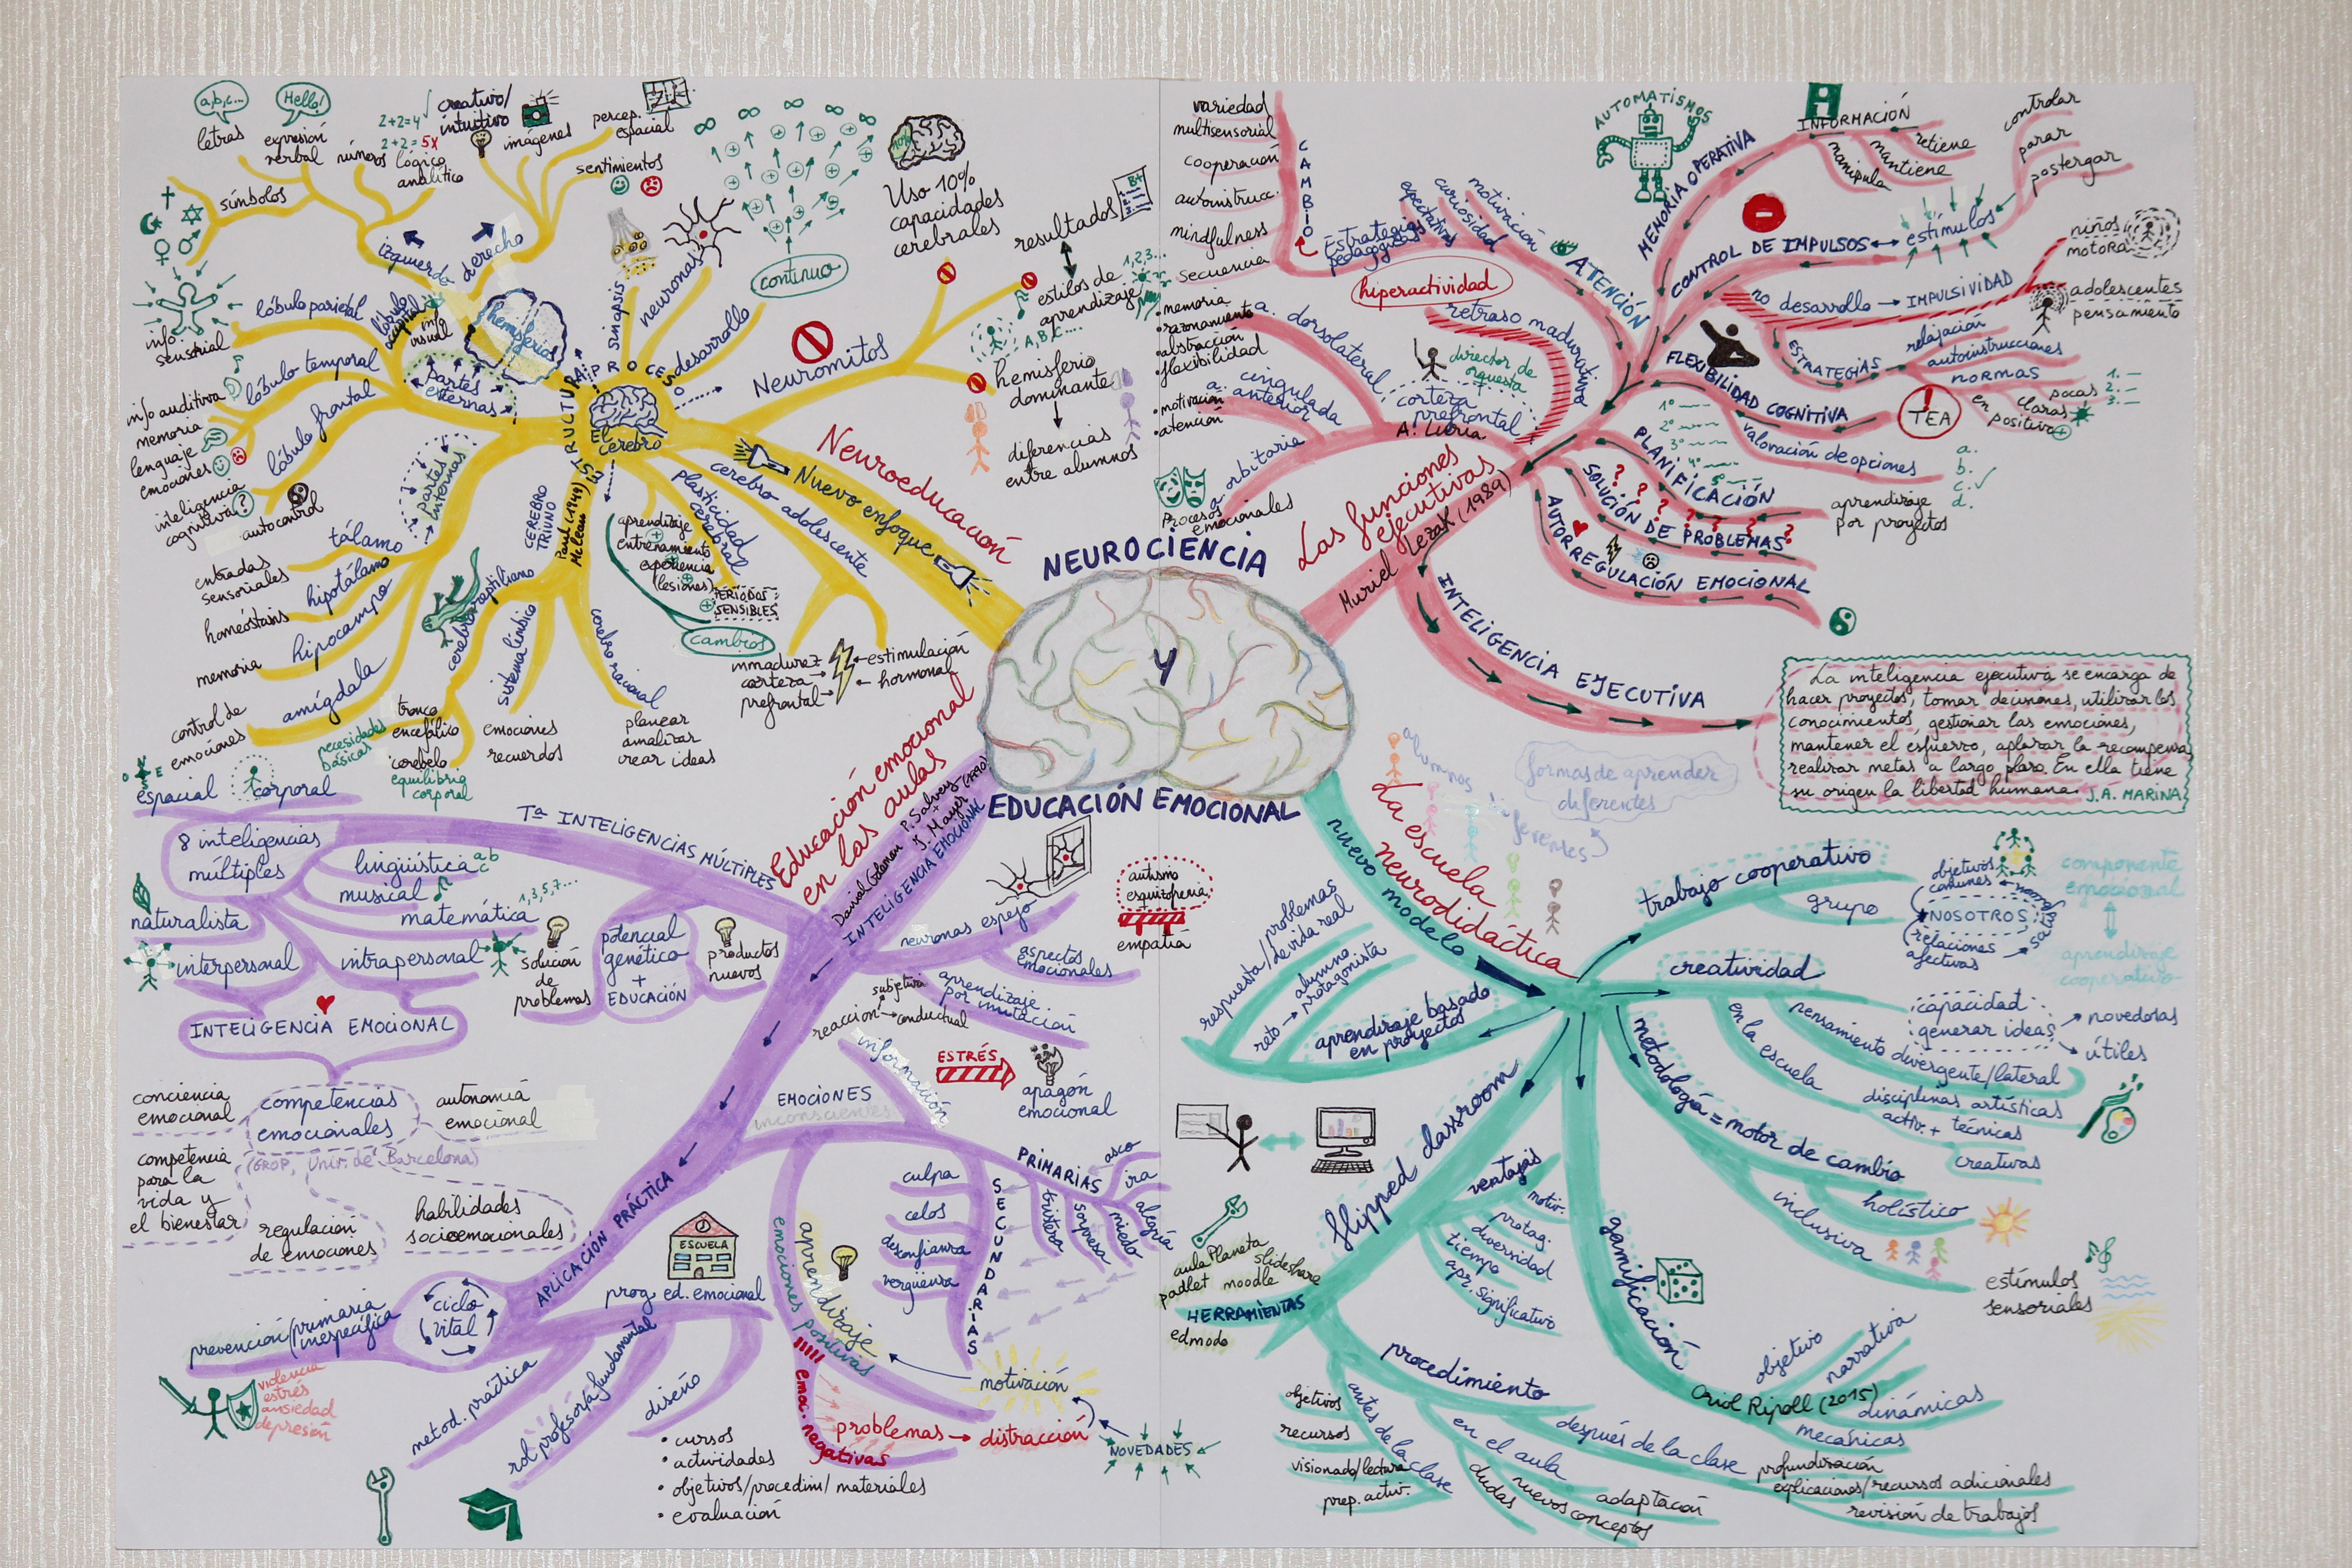 NEUROCIENCIA
Y
EDUCACIÓN EMOCIONAL
Neuroeducación
Nuevo enfoque
El cerebro
ESTRUCTURA
PROCESO
hemisferios
izquierdo
derecho
a,b,c...
letras
Hello!
expresión
verbal
símbolos
números
2+2=4 √
2+2=5x
lógico
analítico
creativo/
intuitivo
imágenes
percep.
espacial
sentimientos
partes
externas
lóbulo occipital
info
visual
lóbulo parietal
info
sensorial
lóbulo temporal
info auditiva
memoria
lenguaje
emociones
lóbulo frontal
inteligencia
cognitiva
autocontrol
partes
internas
tálamo
entradas
sensoriales
hipotálamo
homeóstasis
hipocampo
memoria
amígdala
control de
emociones
CEREBRO
TRIUNO
Paul (1949)
McLean
cerebro reptiliano
necesidades
básicas
tronco
encefálico
cerebelo
equilibrio
corporal
sistema límbico
emociones
recuerdos
cerebro racional
planear
analizar
crear ideas
sinapsis
neuronas
desarrollo
continuo
plasticidad
cerebral
aprendizaje
entrenamiento
experiencia
(lesiones)
PERIODOS
SENSIBLES
cambios
cerebro adolescente
inmadurez
corteza
prefrontal
estimulación
hormonal
Neuromitos
10%
Uso 10%
capacidades
cerebrales
resultados
B+
estilos de
aprendizaje
1,2,3...
A,B,C....
hemisferio
dominante
diferencias
entre alumnos
Las funciones
ejecutivas
Muriel Lezak (1989)
A. Luria
corteza
prefrontal
director de
orquesta
a. dorsolateral
• memoria
• razonamiento
• abstracción
• flexibilidad
a. cingulada
anterior
• motivación
• atención
a. orbitaria
Procesos
emocionales
hiperactividad
retraso madurativo
ATENCIÓN
motivación
curiosidad
expectativas
Estrategias
pedagógicas
CAMBIO
variedad
multisensorial
cooperación
autoinstrucc.
mindfulness
secuencia
AUTOMATISMOS
MEMORIA OPERATIVA
INFORMACIÓN
retiene
mantiene
manipula
CONTROL DE IMPULSOS
estímulos
controlar
parar
postergar
no desarrollo → IMPULSIVIDAD
niños
motora
adolescentes
pensamiento
ESTRATEGIAS
relajación
autoinstrucciones
normas
pocas
claras
en positivo
1.
2.
3.
FLEXIBILIDAD COGNITIVA
TEA
valoración de opciones
a.
b.
c. √
d.
PLANIFICACIÓN
1º
2º
3º
4º
5º
aprendizaje
por proyectos
SOLUCIÓN DE PROBLEMAS
AUTORREGULACIÓN EMOCIONAL
INTELIGENCIA EJECUTIVA
La inteligencia ejecutiva se encarga de
hacer proyectos, tomar decisiones, utilizar los
conocimientos, gestionar las emociones,
mantener el esfuerzo, aplazar la recompensa,
realizar metas a largo plazo. En ella tiene
su origen la libertad humana. J.A. MARINA
Educación emocional
en las aulas
Daniel Goleman
P. Salvey +
J. Mayer (1990)
INTELIGENCIA EMOCIONAL
Tª INTELIGENCIAS MÚLTIPLES
8 inteligencias
múltiples
espacial
corporal
lingüística
a b
c
musical
matemática
1,3,5,7...
naturalista
interpersonal
intrapersonal
INTELIGENCIA EMOCIONAL
potencial
genético
+
EDUCACIÓN
solución
de
problemas
productos
nuevos
competencias
emocionales
(GROP, Univ. de Barcelona)
conciencia
emocional
autonomía
emocional
competencia
para la
vida y
el bienestar
regulación
de emociones
habilidades
socioemocionales
neuronas espejo
autismo
esquizofrenia
empatía
aspectos
emocionales
aprendizaje
por imitación
EMOCIONES
inconscientes
reacción
subjetiva
conductual
información
ESTRÉS
apagón
emocional
PRIMARIAS
asco
ira
alegría
miedo
sorpresa
tristeza
SECUNDARIAS
culpa
celos
desconfianza
vergüenza
emociones positivas
aprendizaje
emoc. negativas
problemas → distracción
motivación
NOVEDADES
APLICACIÓN PRÁCTICA
ciclo
vital
prevención/primaria
inespecífica
violencia
estrés
ansiedad
depresión
ESCUELA
prog. ed. emocional
metod. práctica
rol profesor/a fundamental
diseño
• cursos
• actividades
• objetivos/procedim/materiales
• evaluación
La escuela
neurodidáctica
nuevo modelo
alumnos diferentes
formas de aprender
diferentes
aprendizaje basado
en proyectos
respuesta/problemas
de vida real
reto → alumno
protagonista
trabajo cooperativo
grupo
objetivos
comunes
NOSOTROS
relaciones
afectivas
componente
emocional
aprendizaje
cooperativo
creatividad
capacidad
generar ideas
novedosas
útiles
pensamiento divergente/lateral
en la escuela
disciplinas artísticas
activ. + técnicas
creativas
metodología = motor de cambio
holístico
inclusiva
estímulos
sensoriales
gamificación
Oriol Ripoll (2015)
objetivo
narrativa
dinámicas
mecánicas
flipped classroom
ventajas
motiv.
protag.
diversidad
tiempo
apr. significativo
HERRAMIENTAS
aulaPlaneta
slideshare
padlet moodle
edmodo
procedimiento
antes de la clase
objetivos
recursos
visionado/lectura
prep. activ.
en el aula
dudas
nuevos conceptos
adaptación
después de la clase
profundización
explicaciones/recursos adicionales
revisión de trabajos